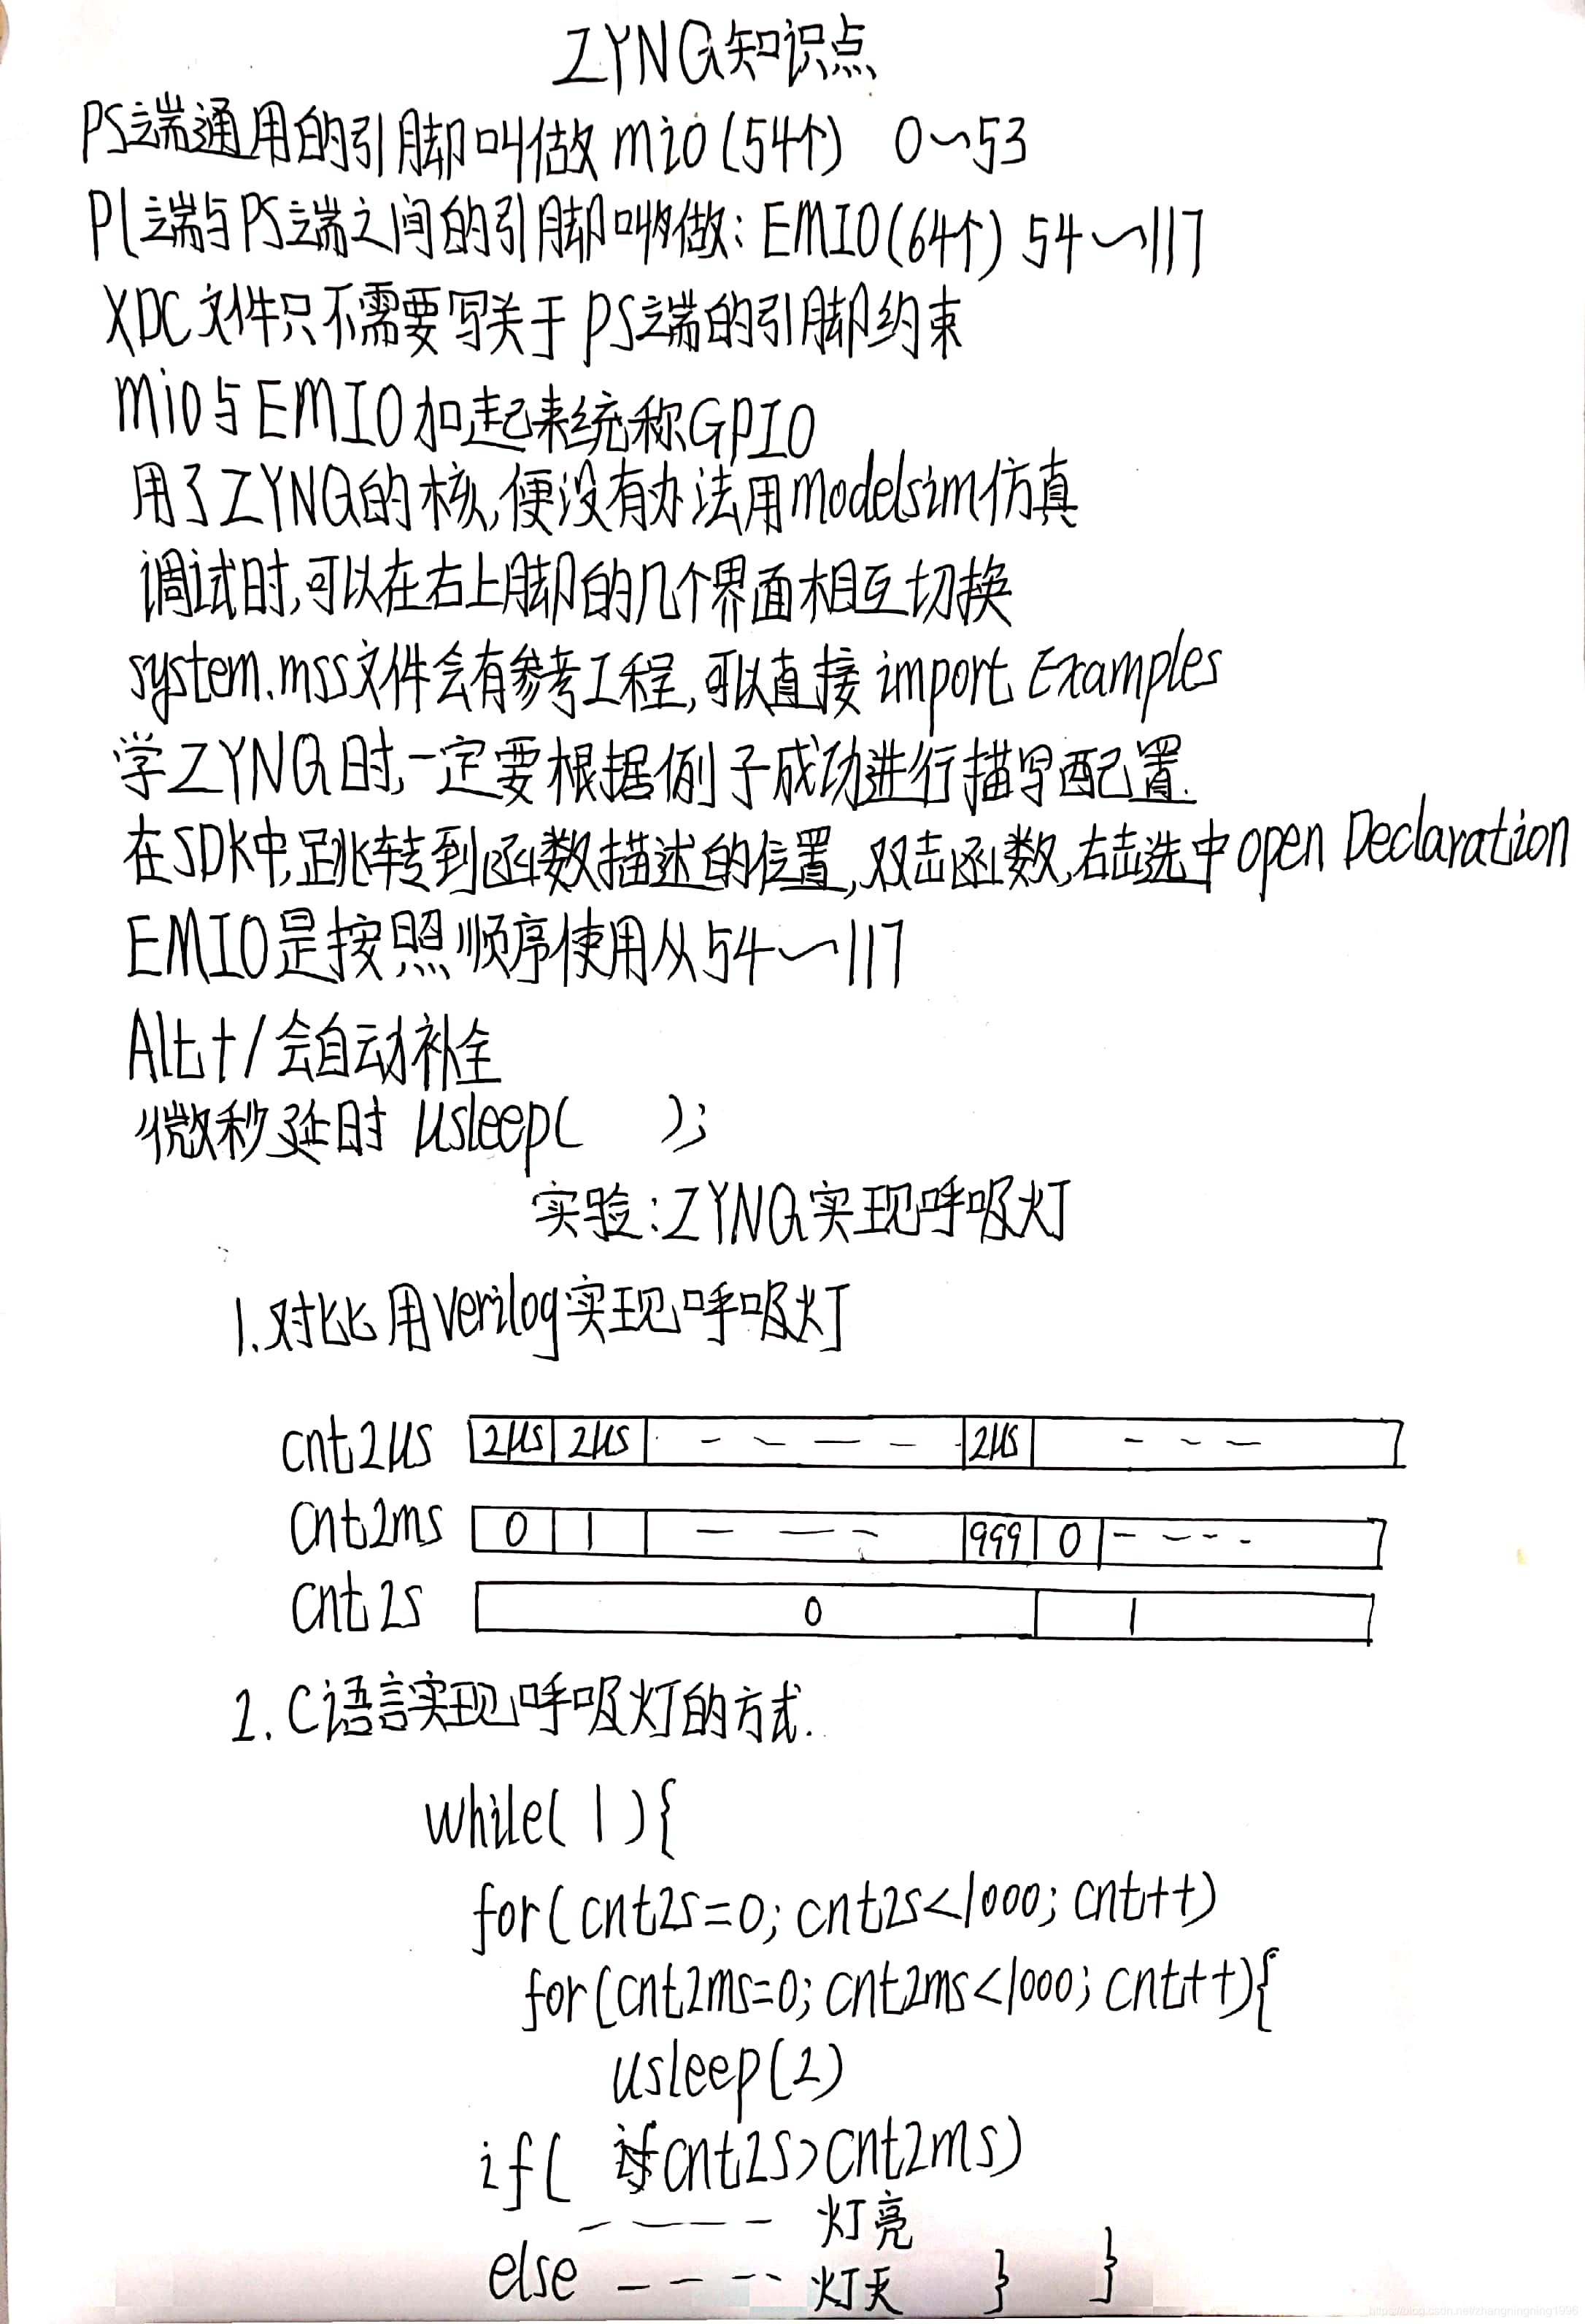 ZYNQ知识点
PS端通用的引脚叫做 mio(54个) 0~53
PL端与PS端之间的引脚叫做: EMIO(64个) 54~117
XDC文件只不需要写关于PS端的引脚约束
mio与EMIO加起来统称GPIO
用了ZYNQ的核,便没有办法用modelsim仿真
调试时,可以在右上脚的几个界面相互切换
system.mss文件会有参考工程,可以直接 import Examples
学ZYNQ时,一定要根据例子成功进行描写配置.
在SDK中,跳转到函数描述的位置,双击函数,右击选中open Declaration
EMIO是按照顺序使用从54~117
Alt+/会自动补全
微秒延时 usleep( );
实验:ZYNQ实现呼吸灯
1.对比用verilog实现呼吸灯
cnt2μs 2μs 2μs - - - - 2μs - - -
cnt2ms 0 1 - - - 999 0 - - - -
cnt2s 0 1
2. C语言实现呼吸灯的方式.
while(1){
for(cnt2s=0; cnt2s<1000; cnt++)
for(cnt2ms=0; cnt2ms<1000; cnt++){
usleep(2)
if( cnt2s>cnt2ms)
- - - - 灯亮
else - - - - 灯灭 } }
https://blog.csdn.net/zhangningning1996